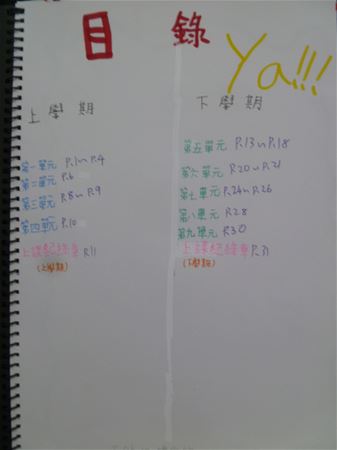 目錄
Ya!!!
上學期
第一單元 P.1~P.4
第二單元 P.6
第三單元 P.8~P.9
第四單元 P.10
上課紀錄章 P.11
(上學期)
下學期
第五單元 P.13~P.18
第六單元 P.20~P.21
第七單元 P.24~P.26
第八單元 P.28
第九單元 P.30
上課紀錄章 P.31
(下學期)